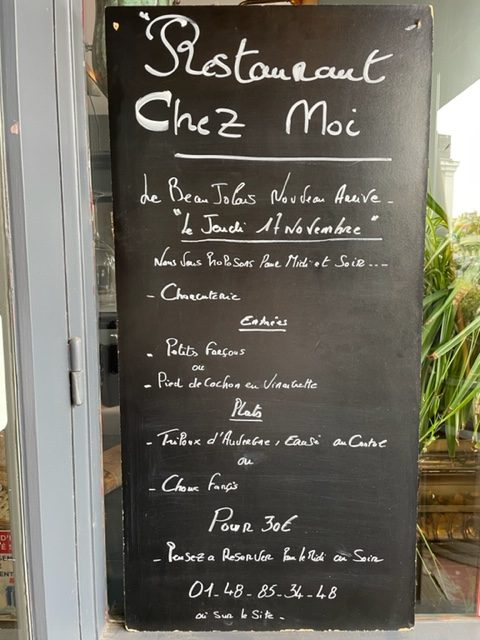 "Restaurant
Chez Moi
Le BeauJolais Nouveau Arrive -
"Le Jeudi 17 Novembre"
Nous Vous Proposons Pour Midi et Soir ---
- Charcuterie
Entrées
- Petits Farçous
ou
- Pied de Cochon en Vinaigrette
Plats
- Tripoux d'Auvergne, au
ou
- Choux Farçis
Pour 30€
- Pensez a Reserver Pour le Midi ou Soir
01-48-85-34-48
ou sur le Site -